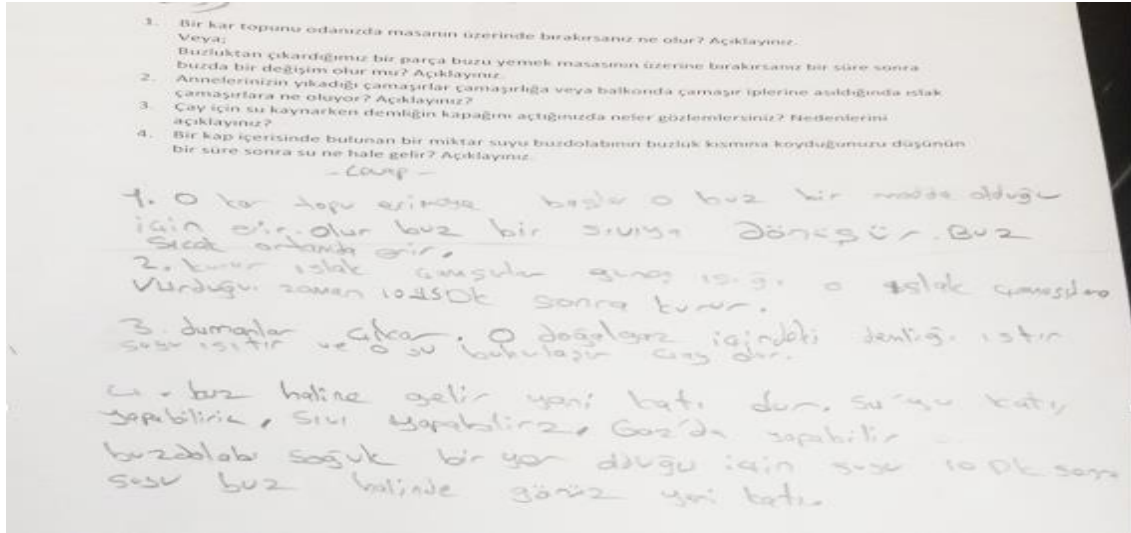 1. Bir kar topunu odanızda masanın üzerinde bırakırsanız ne olur? Açıklayınız.
Veya;
Buzluktan çıkardığımız bir parça buzu yemek masasının üzerine bırakırsanız bir süre sonra
buzda bir değişim olur mu? Açıklayınız.
2. Annelerinizin yıkadığı çamaşırlar çamaşırlığa veya balkonda çamaşır iplerine asıldığında ıslak
çamaşırlara ne oluyor? Açıklayınız?
3. Çay için su kaynarken demliğin kapağını açtığınızda neler gözlemlersiniz? Nedenlerini
açıklayınız?
4. Bir kap içerisinde bulunan bir miktar suyu buzdolabının buzluk kısmına koyduğunuzu düşünün
bir süre sonra su ne hale gelir? Açıklayınız.
- Cevap -
1. O kar topu erimeye başlar o buz bir madde olduğu
için erir. olur buz bir sıvıya Dönüşür. Buz
Sıcak ortamda erir.
2. kurur ıslak güneş ışığı o ıslak
Vurduğu zaman 10 sonra kurur.
3. dumanlar çıkar. O doğalgaz içindeki demliği ısıtır
suyu ısıtır ve o su çay olur.
4. buz haline gelir yani katı dur. su'yu katı,
yapabiliriz, Sıvı yapabiliriz, Gaz'da yapabilir
buzdolabı soğuk bir yer olduğu için suyu 10 Dk sonra
suyu buz halinde yani katı.